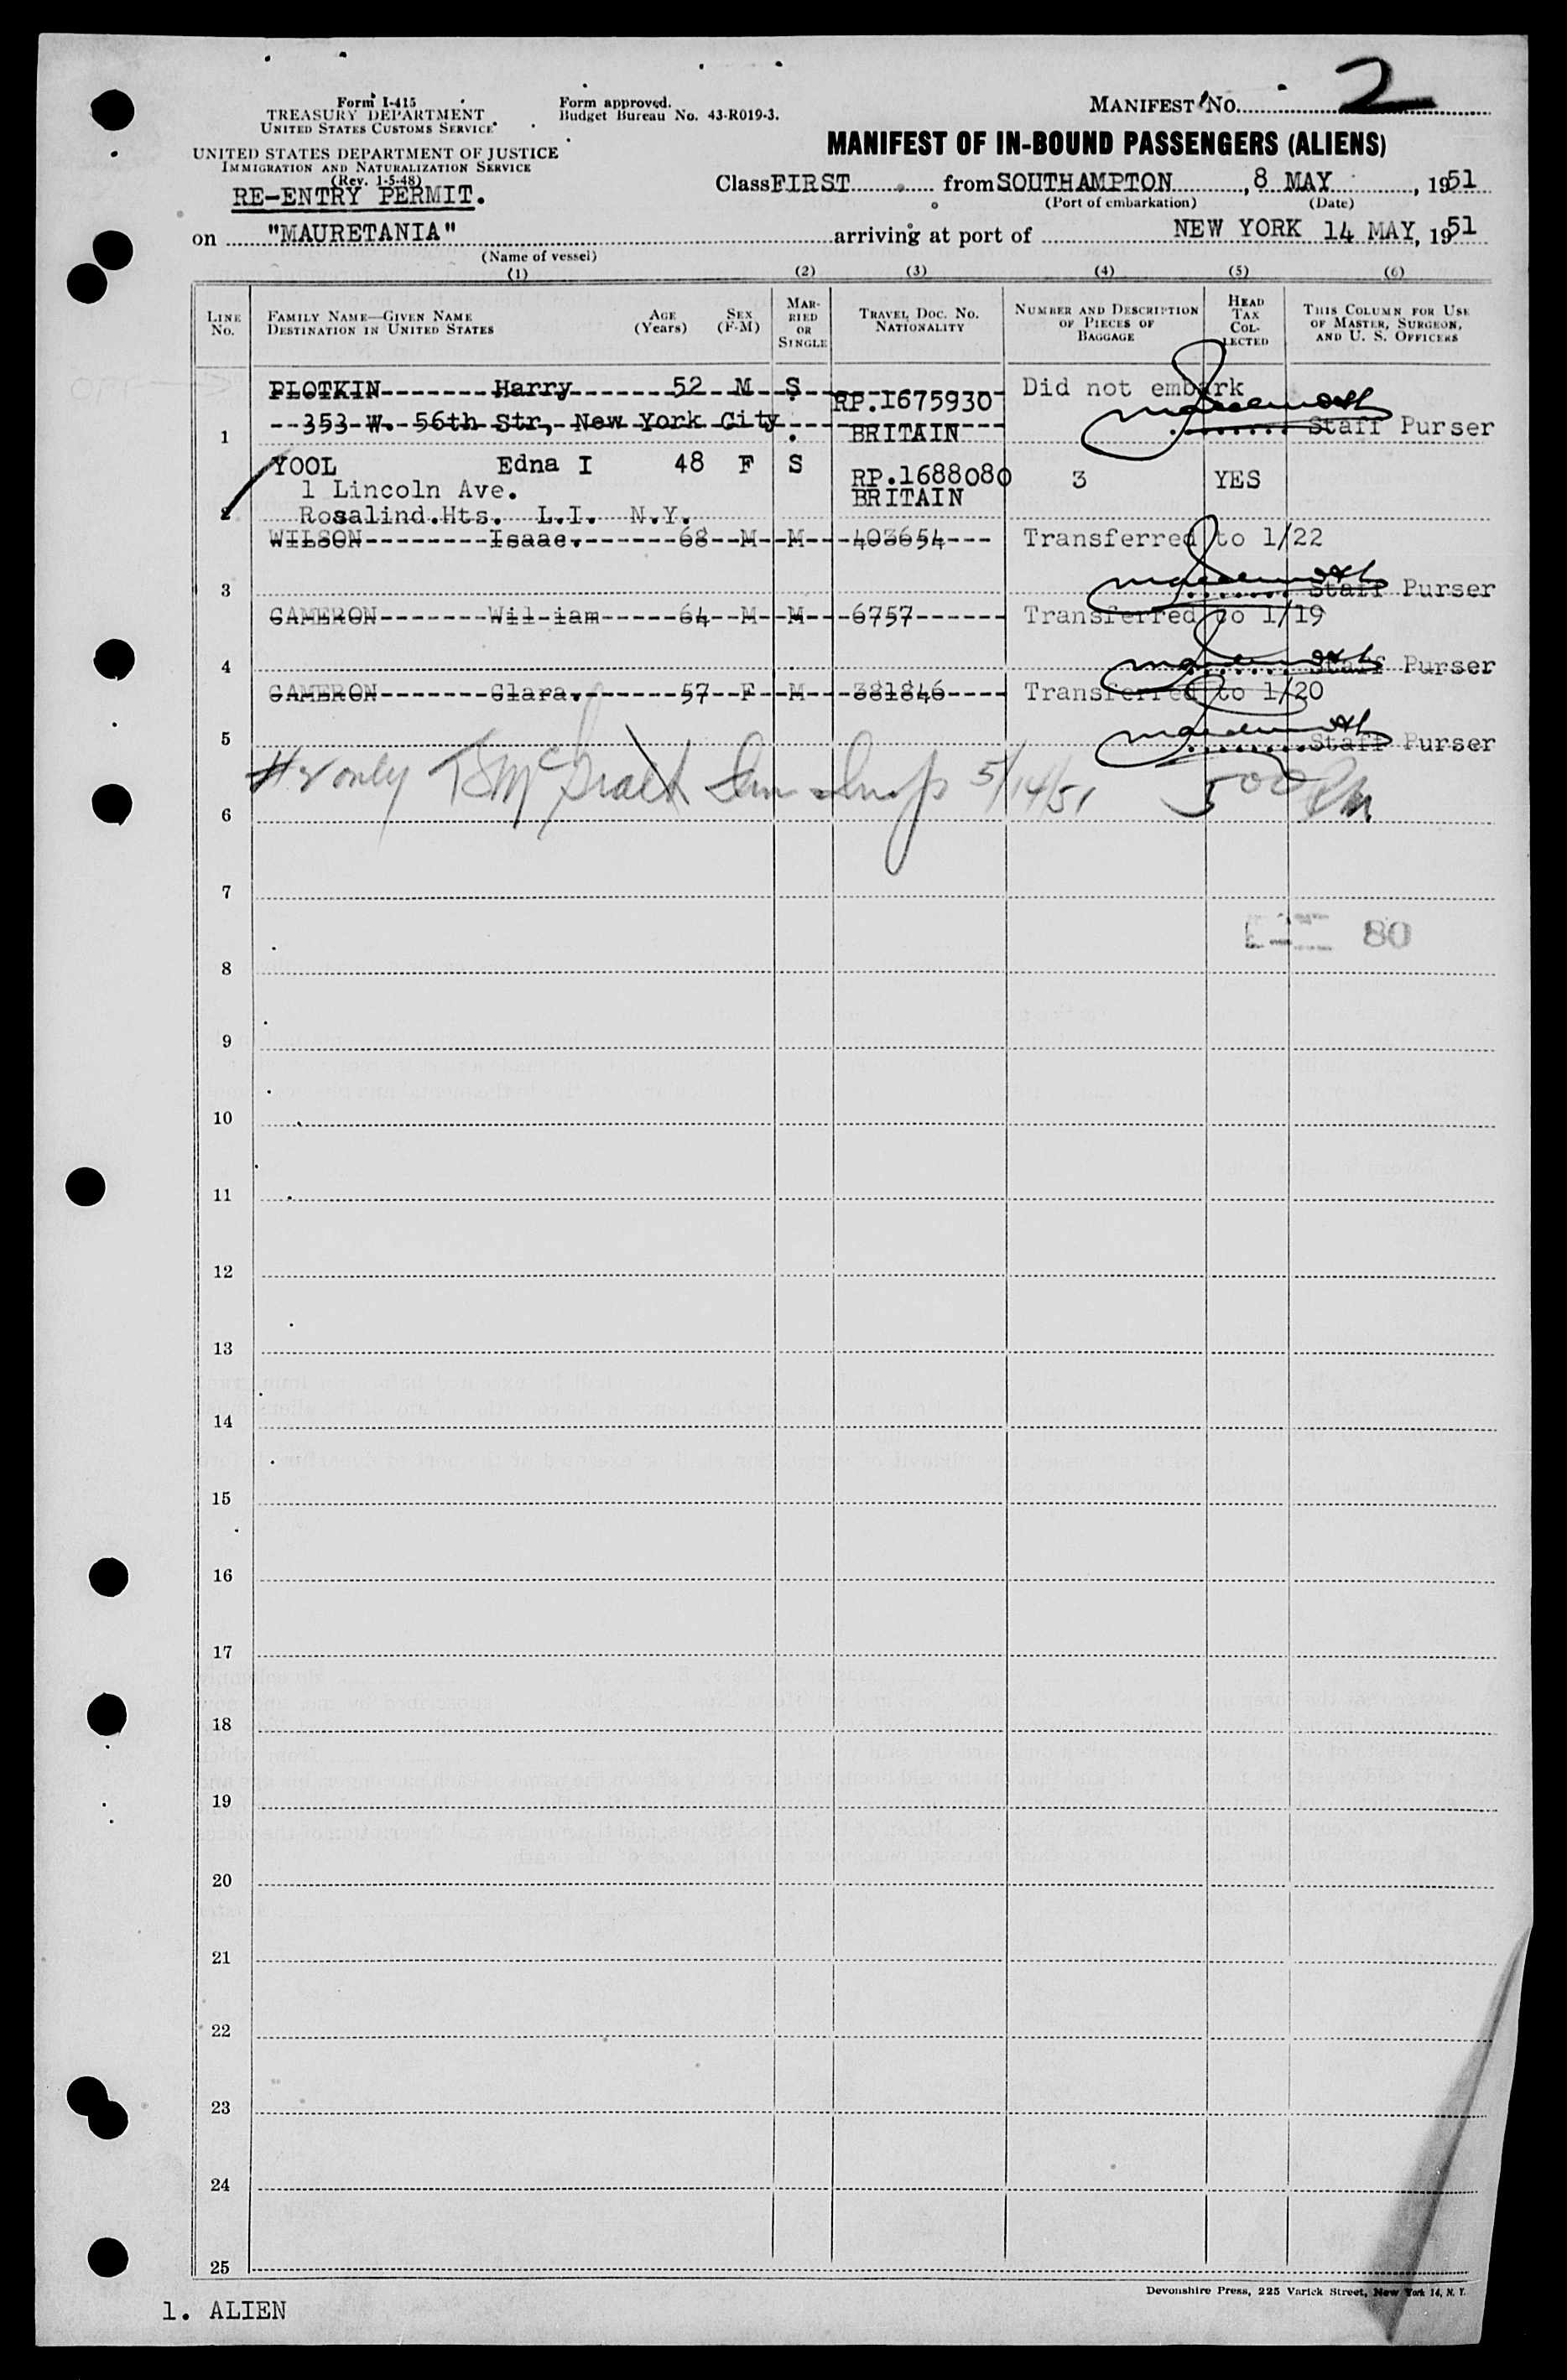 Form I-415
TREASURY DEPARTMENT
UNITED STATES CUSTOMS SERVICE
UNITED STATES DEPARTMENT OF JUSTICE
IMMIGRATION AND NATURALIZATION SERVICE
(Rev. 1-5-48)
RE-ENTRY PERMIT.
Form approved.
Budget Bureau No. 43-R019-3.
MANIFEST NO. 2
MANIFEST OF IN-BOUND PASSENGERS (ALIENS)
Class FIRST from SOUTHAMPTON, 8 MAY, 1951
(Port of embarkation) (Date)
on "MAURETANIA" arriving at port of NEW YORK 14 MAY, 1951
(Name of vessel)
(1) (2) (3) (4) (5) (6)
LINE NO.
FAMILY NAME—GIVEN NAME
DESTINATION IN UNITED STATES
AGE (Years)
SEX (F-M)
MARRIED OR SINGLE
TRAVEL DOC. NO. NATIONALITY
NUMBER AND DESCRIPTION OF PIECES OF BAGGAGE
HEAD TAX COLLECTED
THIS COLUMN FOR USE OF MASTER, SURGEON, AND U. S. OFFICERS
PLOTKIN Harry 52 M S RP.I675930 Did not embark
1 353 W. 56th Str, New York City BRITAIN Staff Purser
YOOL Edna I 48 F S RP.1688080 3 YES
1 Lincoln Ave. BRITAIN
2 Rosalind.Hts. L.I. N.Y.
WILSON Isaac. 68 M M 403654 Transferred to 1/22
3 Staff Purser
CAMERON Wil-iam 64 M M 6757 Transferred to 1/19
4 Staff Purser
CAMERON Clara. 57 F M 381846 Transferred to 1/20
5 Staff Purser
only 5/14/51 500
6
7
80
8
9
10
11
12
13
14
15
16
17
18
19
20
21
22
23
24
25
Devonshire Press, 225 Varick Street, New York 14, N. Y.
1. ALIEN